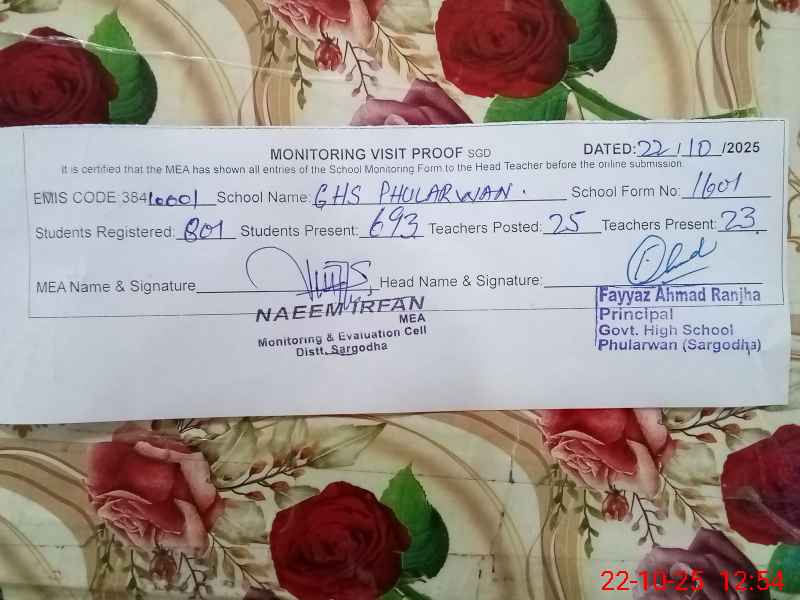 MONITORING VISIT PROOF SGD DATED: 22/10/2025
It is certified that the MEA has shown all entries of the School Monitoring Form to the Head Teacher before the online submission.
EMIS CODE:38410001 School Name: GHS PHULARWAN. School Form No: 1601
Students Registered: 801 Students Present: 693 Teachers Posted: 25 Teachers Present: 23
MEA Name & Signature Head Name & Signature:
NAEEM IRFAN
MEA
Monitoring & Evaluation Cell
Distt. Sargodha
Fayyaz Ahmad Ranjha
Principal
Govt. High School
Phularwan (Sargodha)
22-10-25 12:54